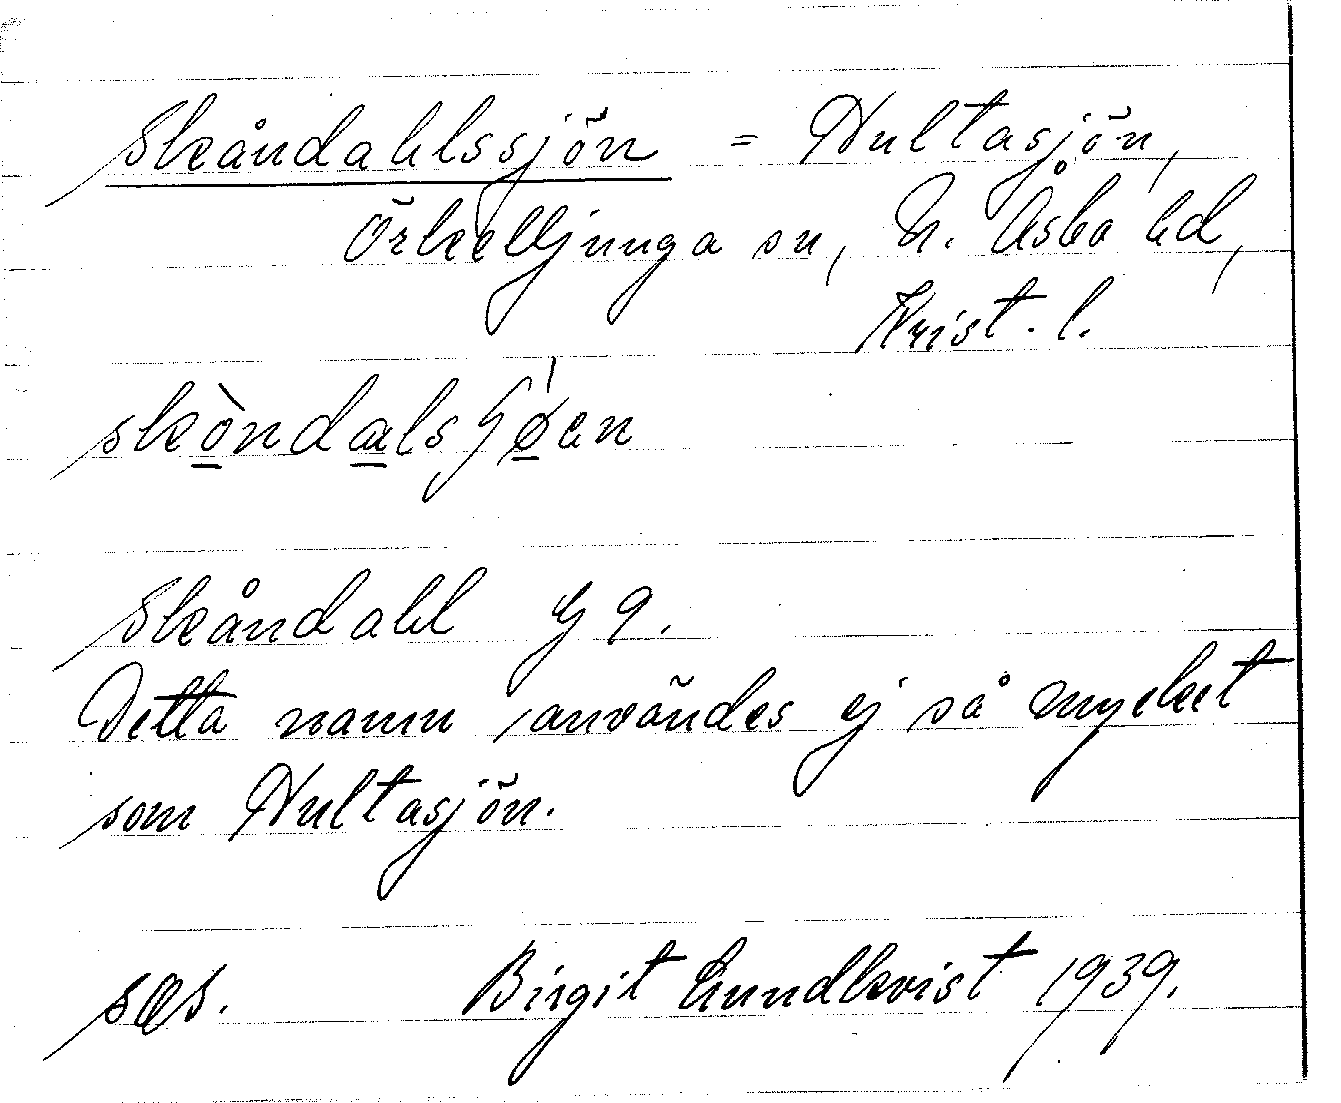 Skåndahlssjön = Hultasjön,
Örkelljunga sn, N. Åsbo hd,
Krist. l.
skòndalsʃø̍en
Skåndahl G 9.
Detta namn användes ej så mycket
som Hultasjön.
søs. Birgit Lundkvist 1939.